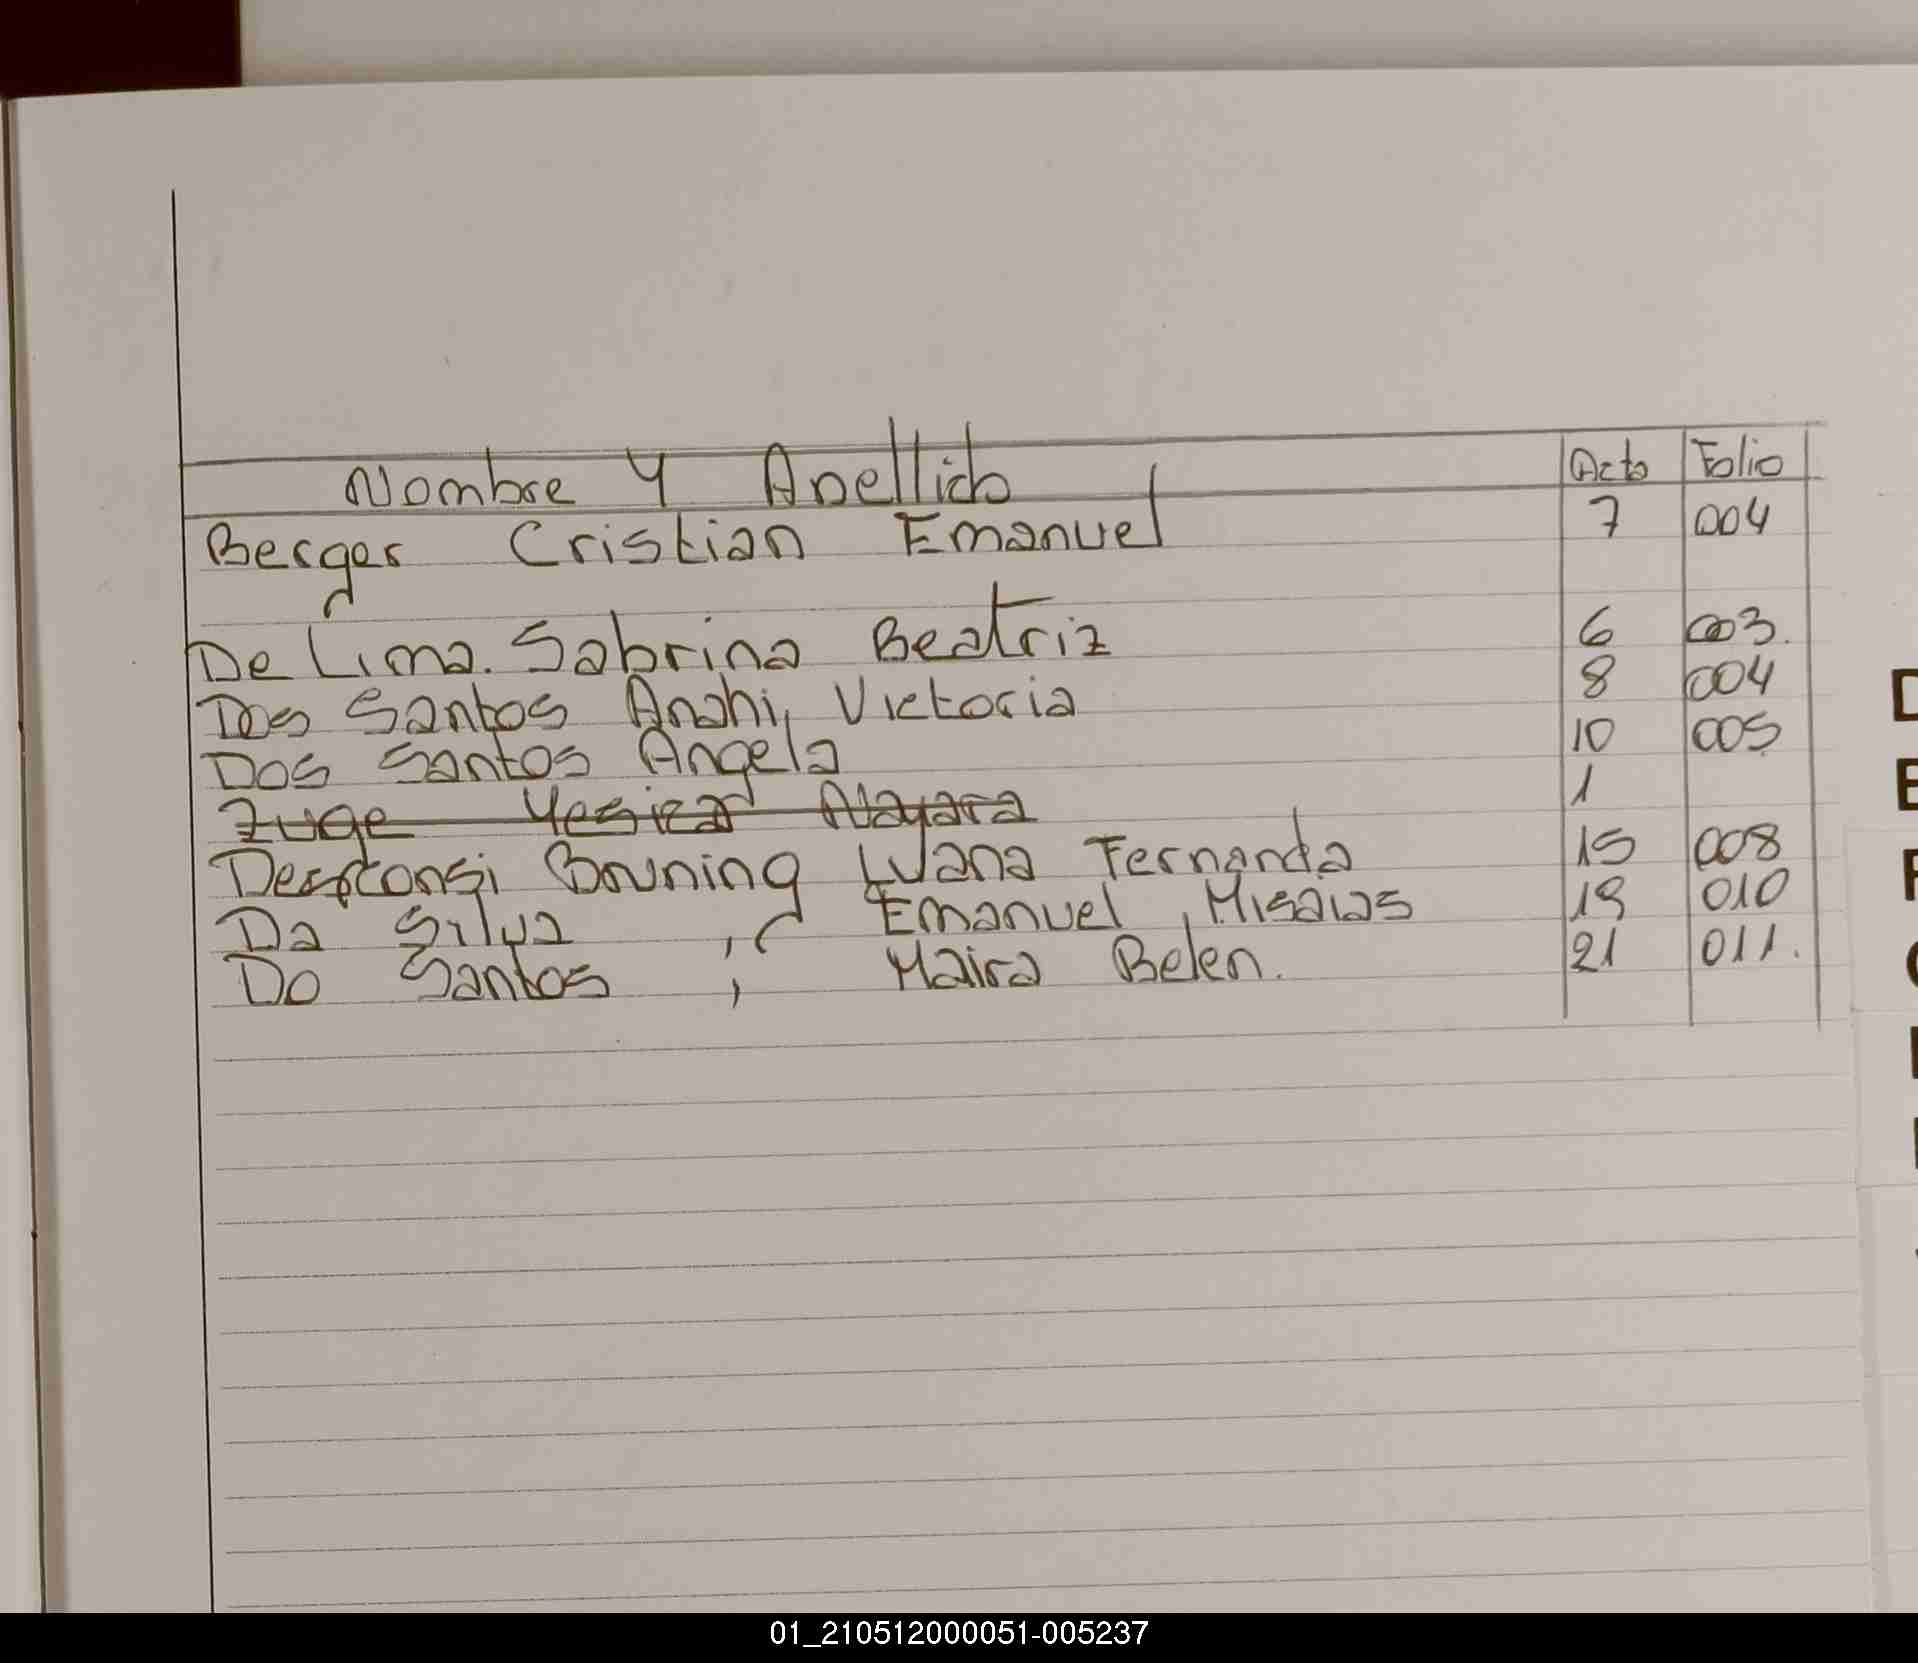 Nombre Y Apellido Acta Folio
Berger Cristian Emanuel 7 004
De Lima. Sabrina Beatriz 6 003.
Dos Santos Anahi, Victoria 8 004
Dos Santos Angela 10 005
Zuge Nayara 1
Bruning Luana Fernanda 15 008
Da Silva, Emanuel, Misaias 19 010
Do Santos, Maira Belen. 21 011.
D
E
F
01_210512000051-005237